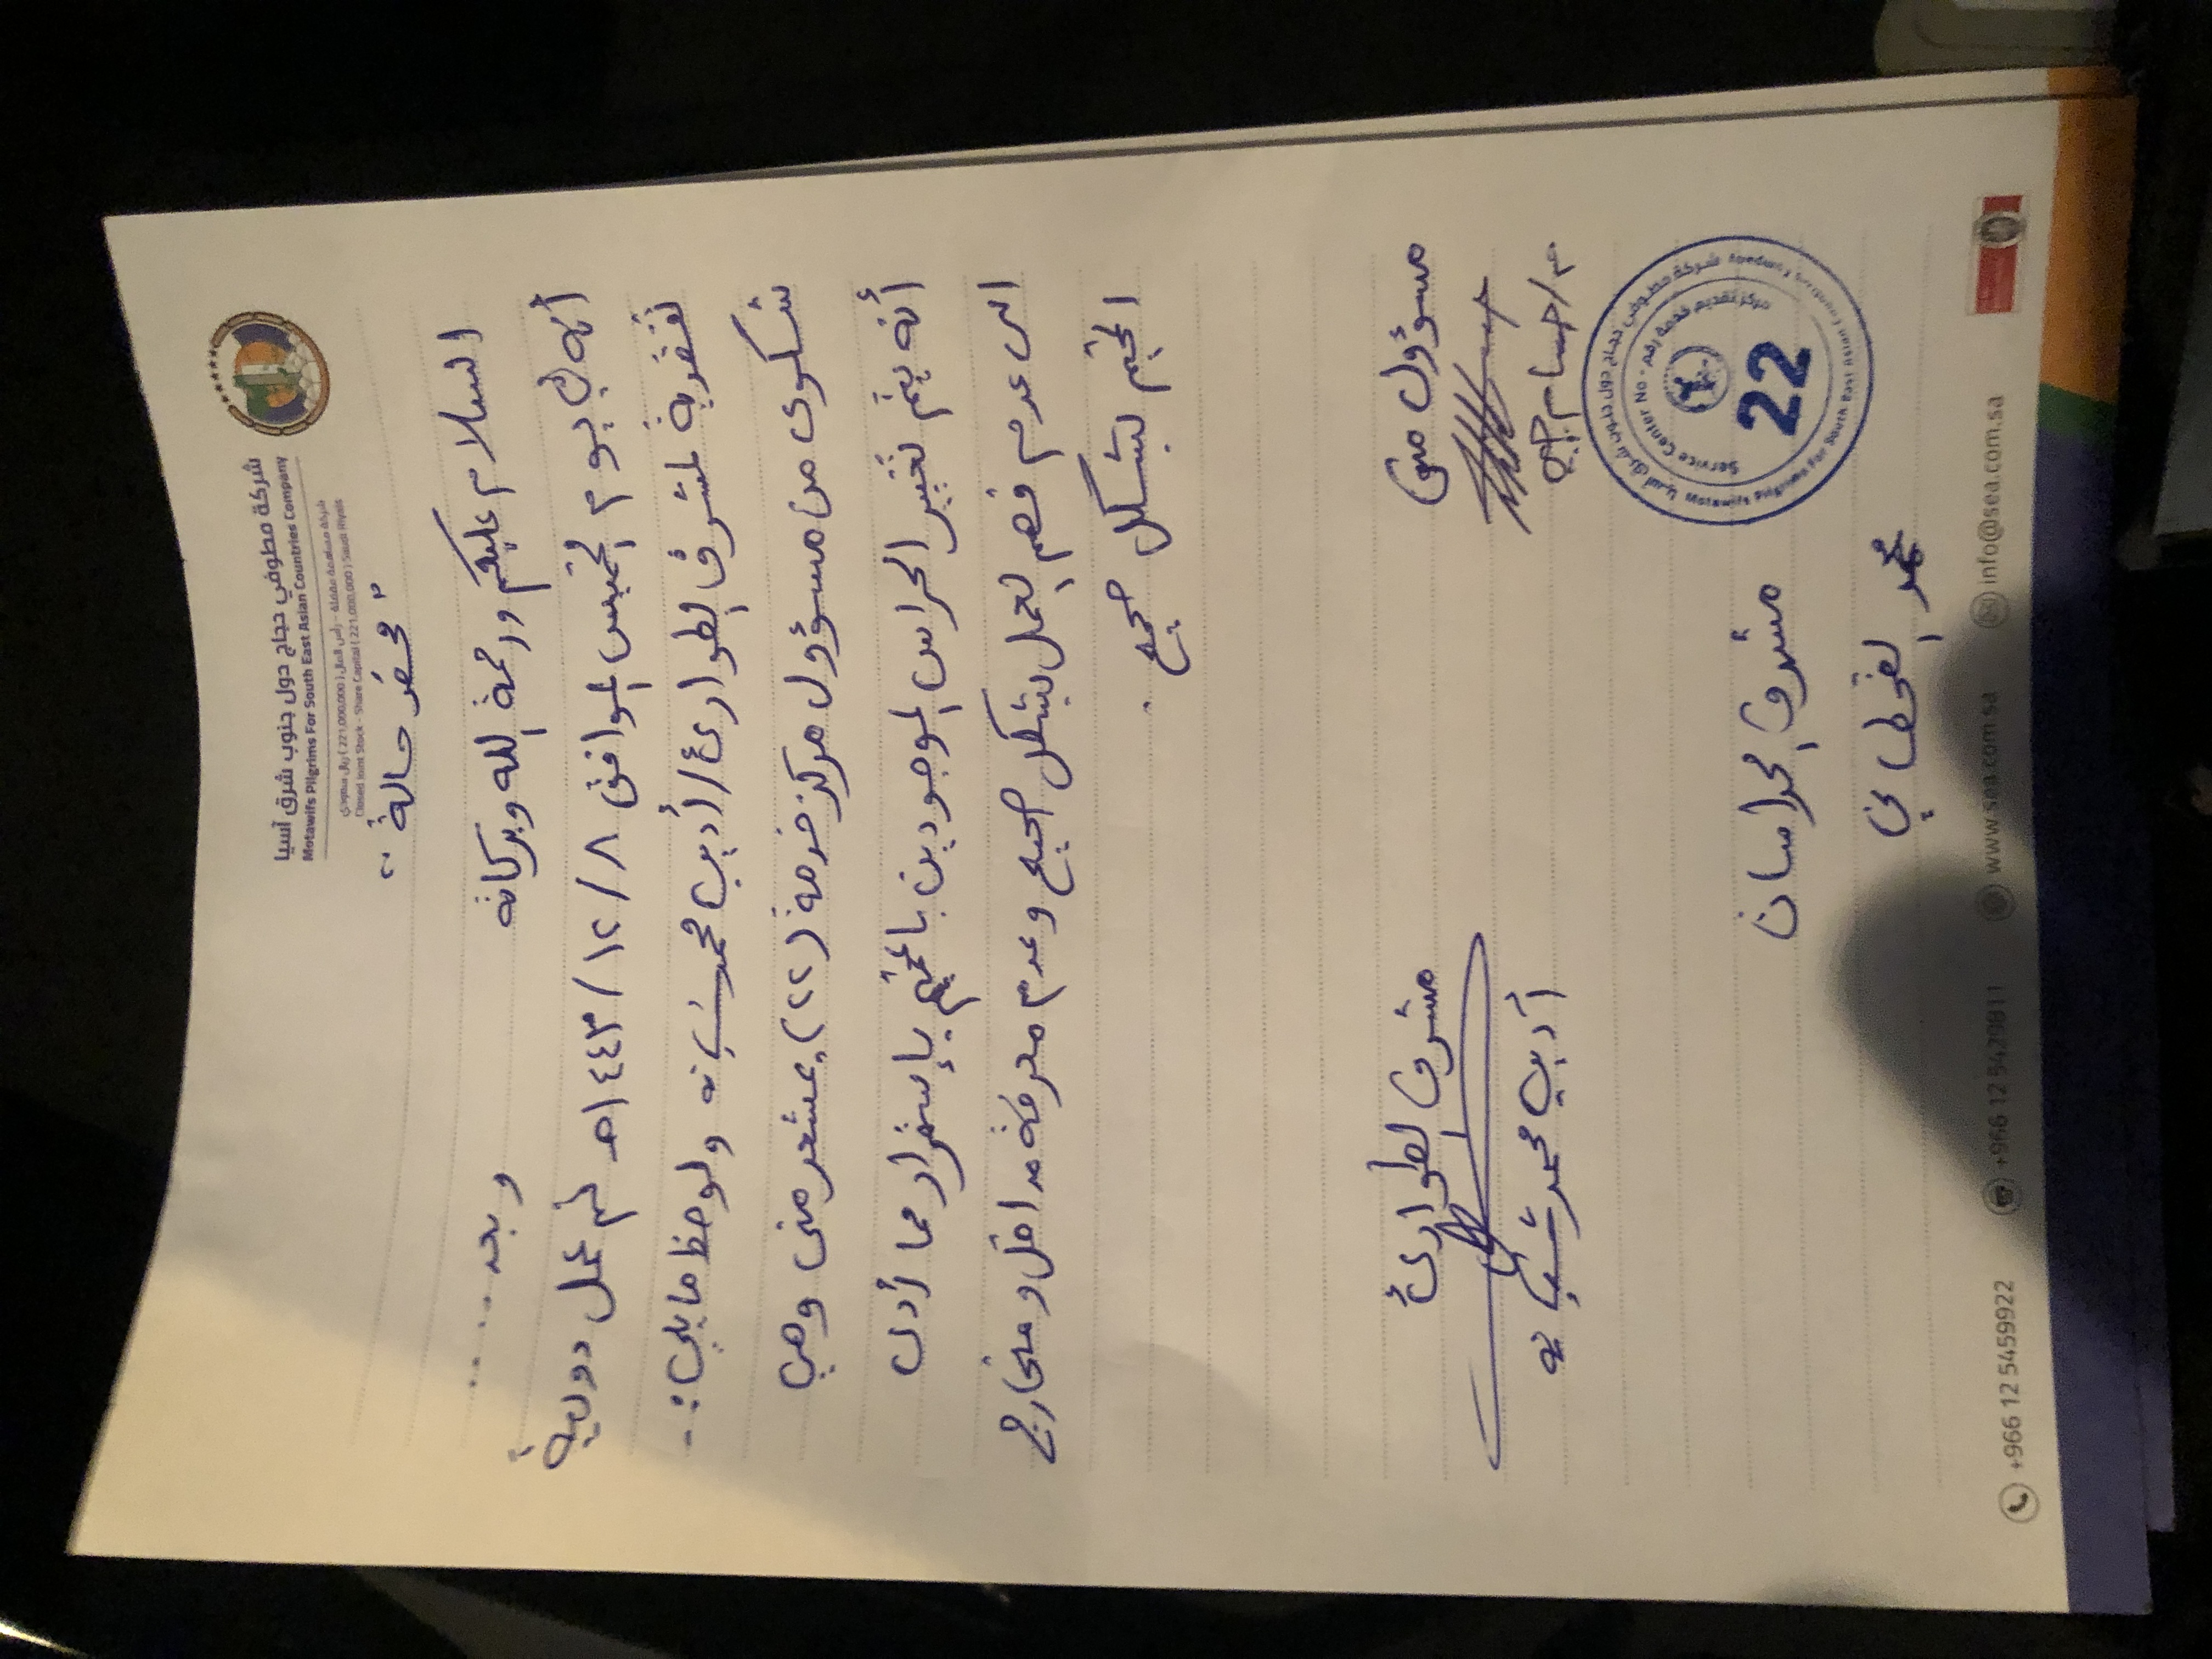 شركة مطوفي حجاج دول جنوب شرق آسيا
Motawifs Pilgrims For South East Asian Countries Company
شركة مساهمة مقفلة - رأس المال ( 221,000,000 ) ريال سعودي
Closed Joint Stock - Share Capital ( 221,000,000 ) Saudi Riyals
" محضر حالة "
السلام عليكم ورحمة الله وبركاته وبعد .....
أنه في يوم الخميس الموافق ٨ / ١٢ / ١٤٤٣هـ تم عمل دورية
تفقدية لمشرف الطوارئ / أديب محمد ولوحظ ما يلي :-
شكوى من مسؤول مركز خدمة (٢٢) بمشعر منى وهي
أنه يتم تغيير الحراس الموجودين بالمخيم بإستمرار مما أدى
الى عدم فهم العمل بشكل صحيح وعدم معرفة مداخل و مخارج
المخيم بشكل صحيح .
مسؤول منى
مشرف الطوارئ
م / حسام
أديب محمد
شركة مطوفي حجاج دول جنوب شرق آسيا
Motawifs Pilgrims For South East Asian Countries Company
Service Center No - مركز تقديم خدمة رقم
22
مشرف الحراسات
محمد القحطاني
+966 12 5459922
+966 12 5429811
www.sea.com.sa
info@sea.com.sa